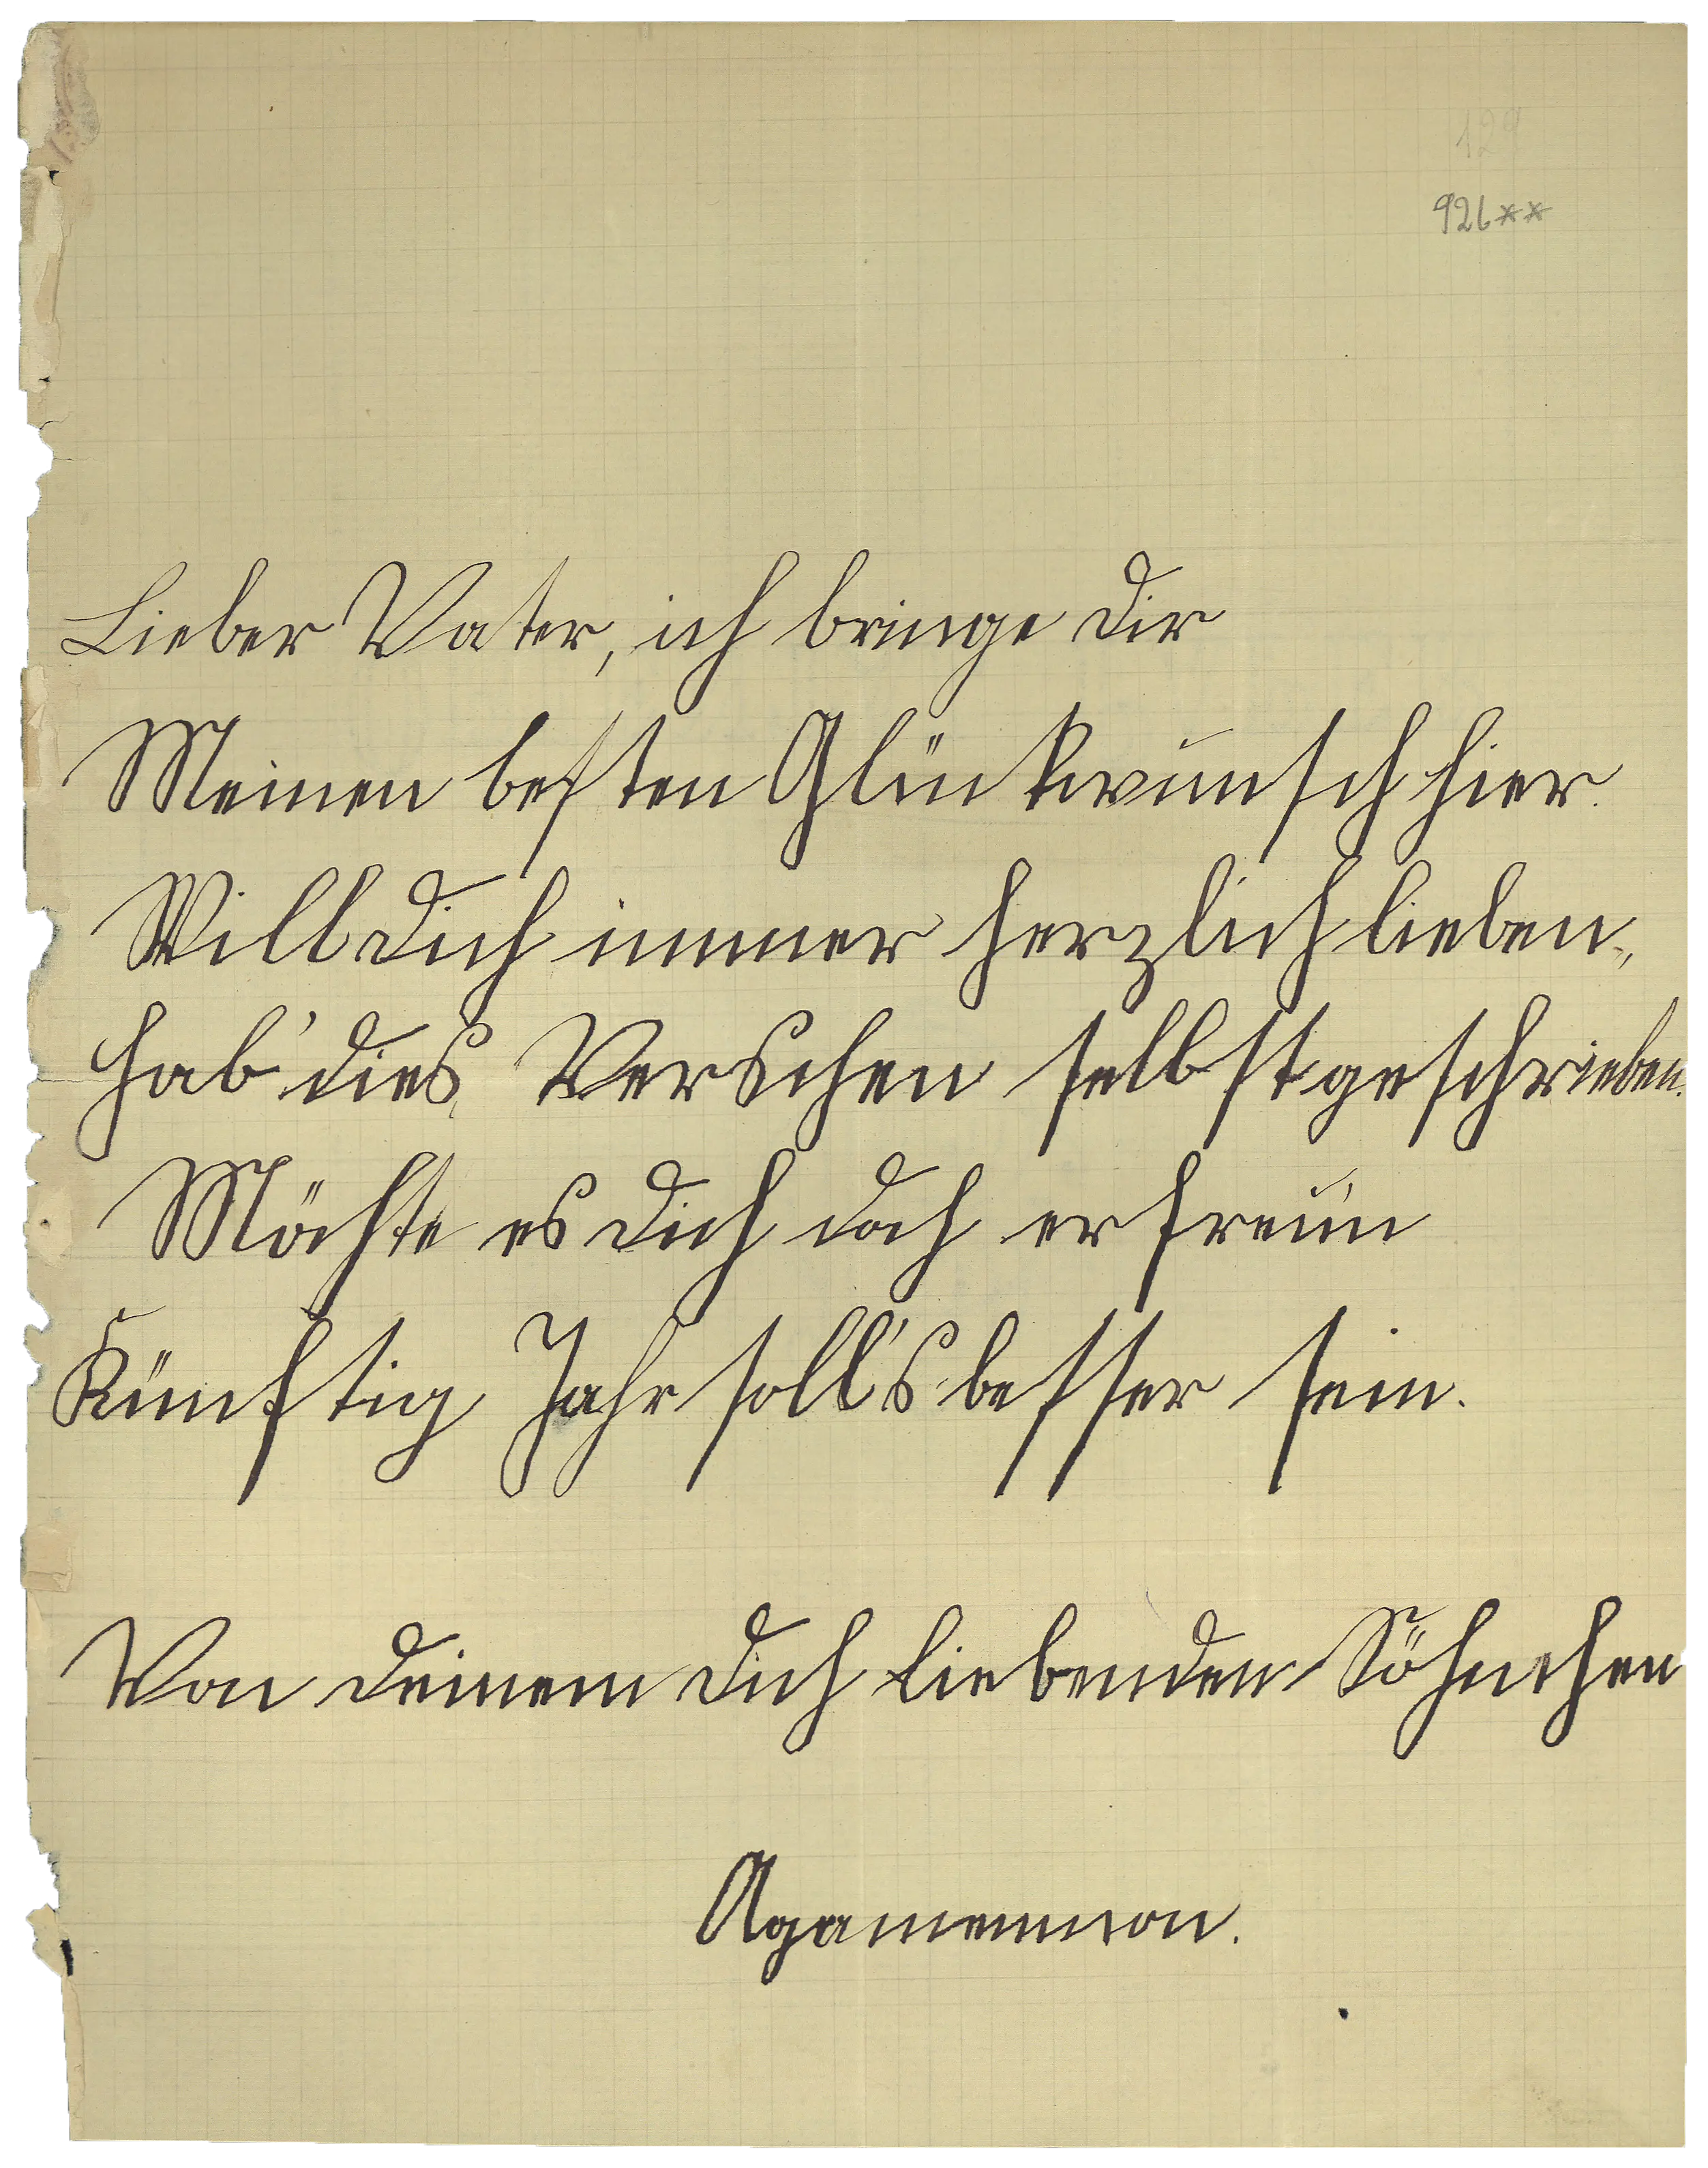 129
926**
Lieber Vater, ich bringe dir
Meinen besten Glückwunsch hier.
Will dich immer herzlich lieben,
Hab' dies Verschen selbst geschrieben.
Möchte es dich doch erfreun
Künftig Jahr soll's besser sein.
Von deinem dich liebenden Söhnchen
Agamemnon.